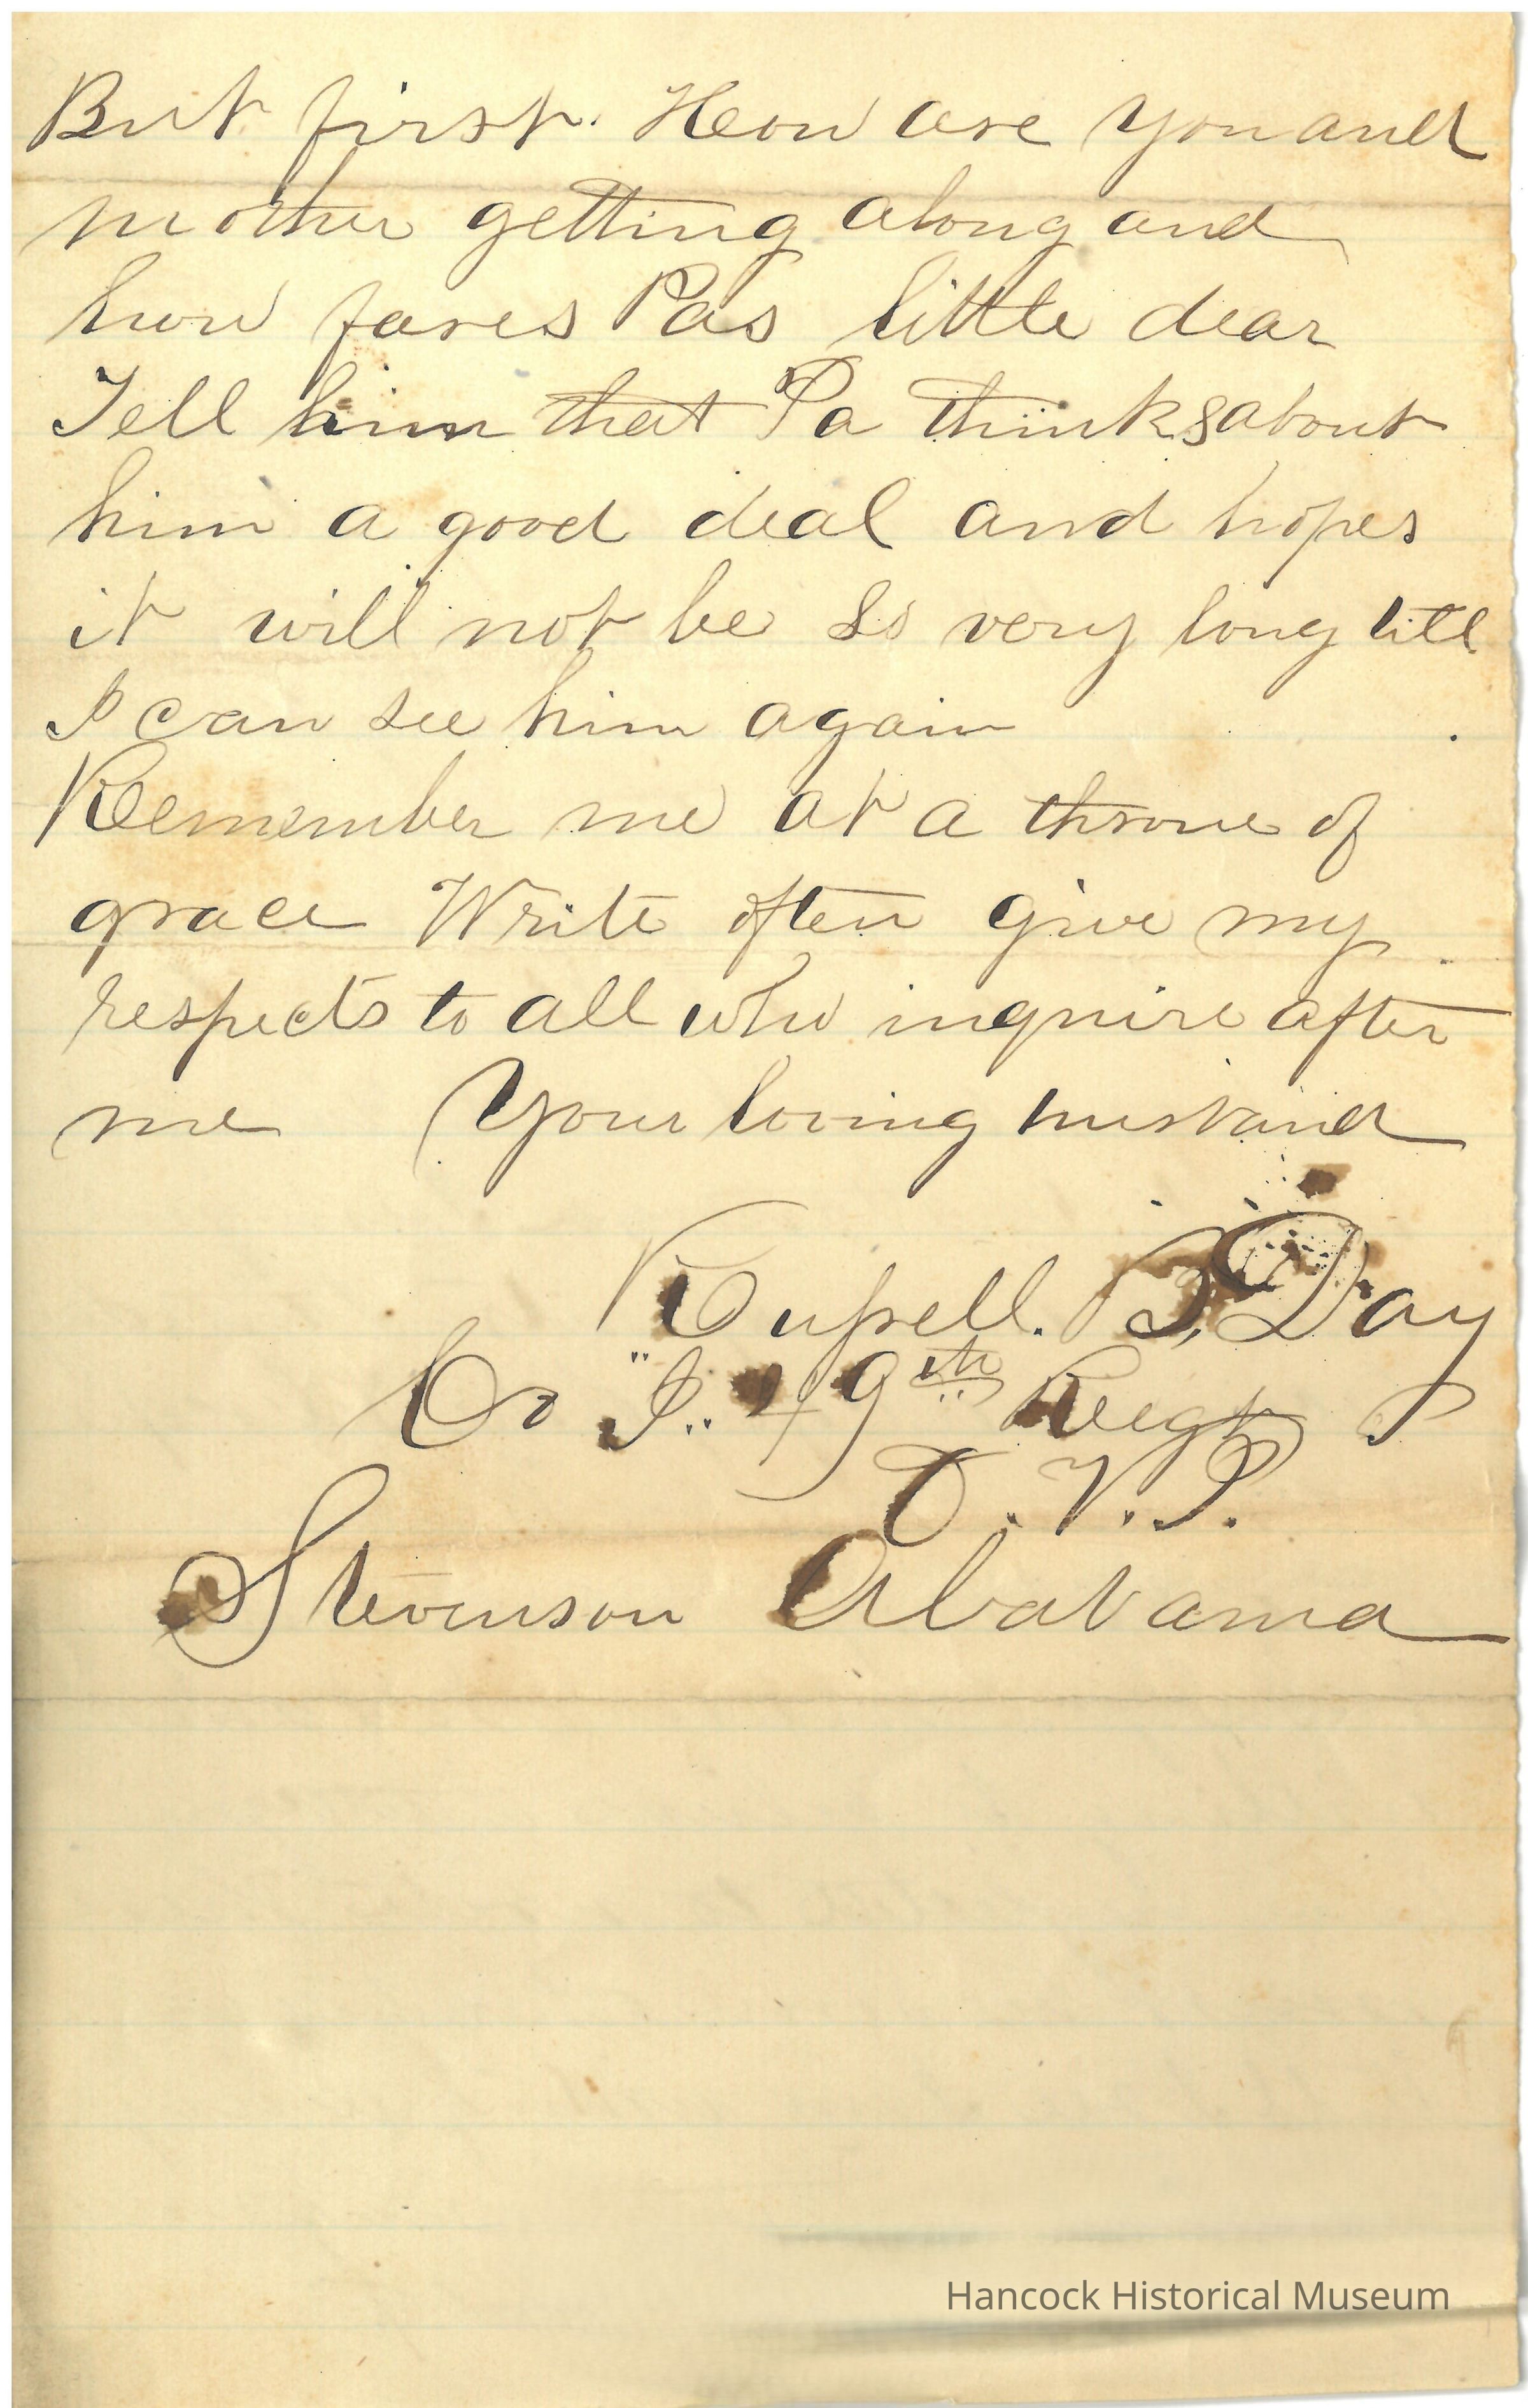 But first. How are you and
mother getting along and
how fares Pas little dear
Tell him that Pa thinks about
him a good deal and hopes
it will not be so very long till
I can see him again
Remember me at a throne of
grace Write often give my
respects to all who inquire after
me Your loving husband
Russell. B. Day
Co "I" 49th Regt
O. V. I.
Stevenson Alabama
Hancock Historical Museum